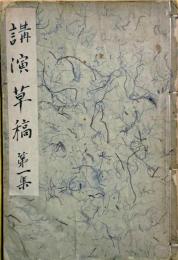 講演草稿 第一集